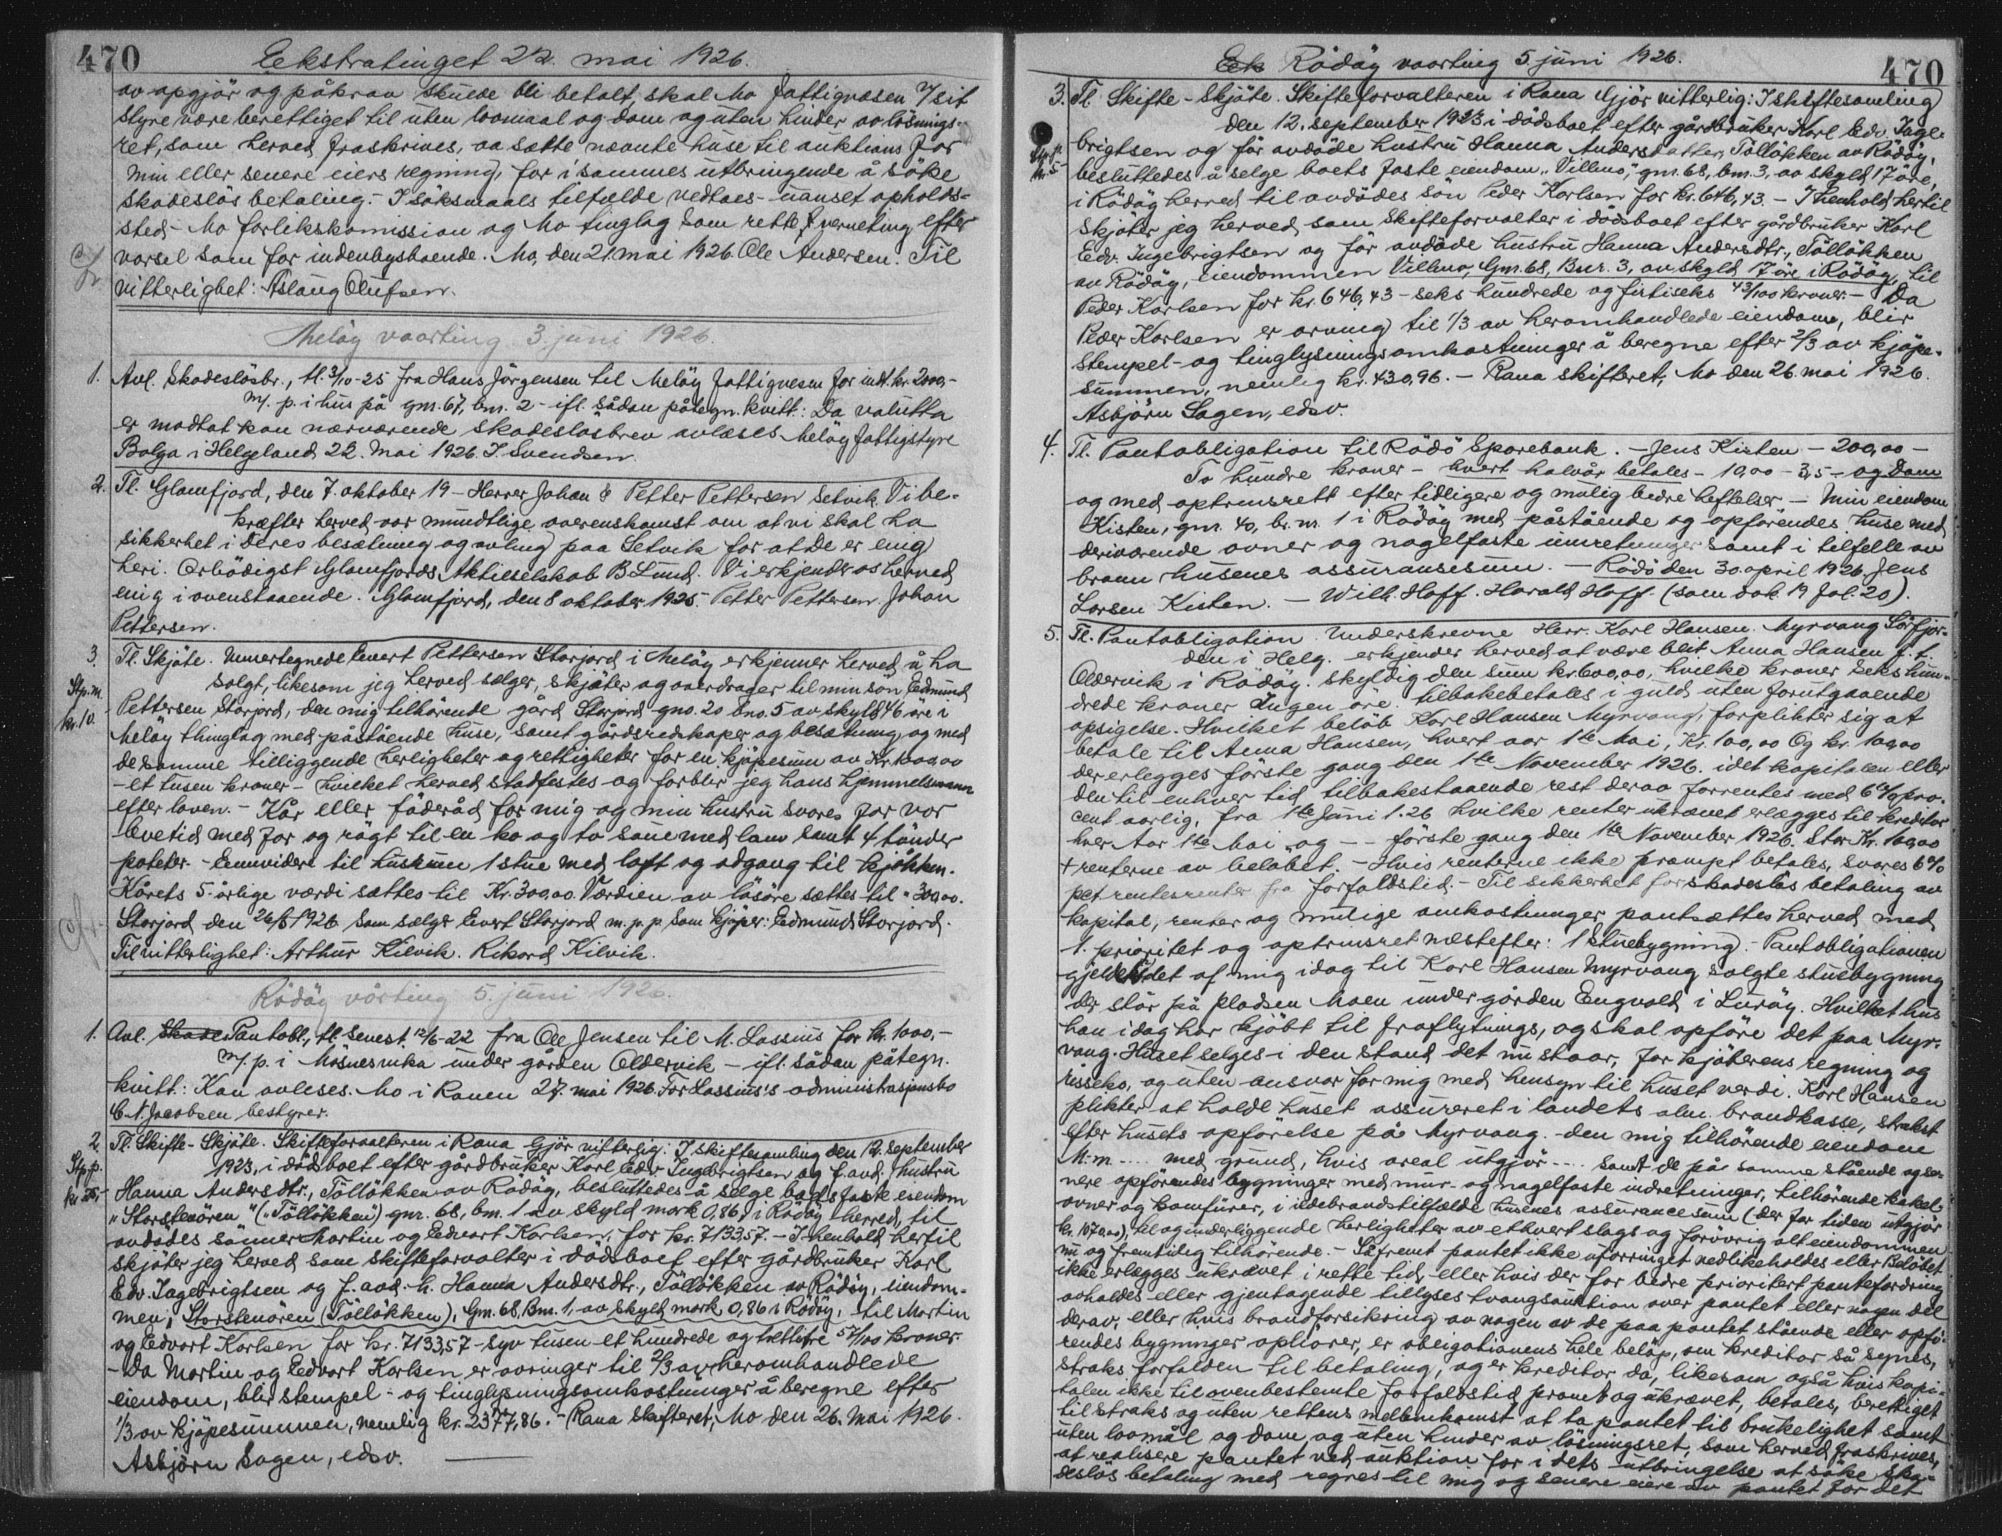 470
Ekstratinget 22. mai 1926.
av opgjör og påkrav skulde bli betalt, skal Mo Fattigvæsen v/ sit
styre være berettiget til uten lovmaal og dom og uten hinder av lösnings-
ret, som herved fraskrives, aa sætte nævnte huse til auktions for
min eller senere eiers regning, for i sammes utbringende å söke
skadeslös betaling. I söksmaals tilfælde vedtaes - uanset opholds-
sted - Mo forlikskomission og Mo tinglag som rette verneting efter
varsel som for indenbysboende. Mo, den 21 mai 1926. Ole Andersen. Til
vitterlighet: Aslaug Olufsen.
Melöy vaarting 3. juni 1926.
1. Avl. Skadeslösbr., tl. 3/10-25 fra Hans Jörgensen til Melöy Fattigvesen for inntil kr. 2000,-
m/. p. i hus på gnr. 67, bnr. 2 - ifl. sådan påtegn. kvitt.: Da valutta
er modtat kan nærværende skadeslösbrev avlæses. Melöy fattigstyre
Bolga i Helgeland 22. Mai 1926. J. Svendsen.
2. Tl. Glomfjord, den 7. oktober 19 - Herrer Johan & Petter Pettersen Setvik. Vi be-
kræfter herved vor mundtlige overenskomst om at vi skal ha
sikkerhet i Deres besætning og avling paa Setvik for at De er enig
heri. Ærbödigst Glomfjords Aktieselskab B. Lund. Vi erkjender os herved
enig i ovenstaaende. Glomfjord, den 8 oktober 1925. Petter Pettersen. Johan
Pettersen.
3. Tl. Skjöte. Undertegnede Evert Pettersen Storjord i Melöy erkjenner herved å ha
Stp.m.
kr. 10.
solgt, likesom jeg herved sælger, skjöter og overdrager til min sön Edmund
Pettersen Storjord, den mig tilhörende gård Storjord gno. 20 bno. 5 av skyld 46 öre i
Melöy thinglag med påstående huse, samt gårdsredskaper og besætning, og med
de samme tilliggende herligheter og rettigheter for en kjöpesum av Kr. 1000,00
- et tusen kroner - hvilket herved stadfestes og forblir jeg hans hjemmelsmann
efter loven. - Kår eller föderåd for mig og min hustru svares for vor
levetid med for og rögt til en ko og to sauer med lam samt 4 tönder
poteter. - Ennvidere til husrum 1 stue med loft og adgang til kjökken.
Kårets 5. årlige værdi sættes til Kr. 300,00. Værdien av lösöre sættes til " 300,00.
Storjord den 26/5 1926 Som sælger Evert Storjord m. p. p. Som kjöper: Edmund Storjord.
Til vitterlighet: Arthur Kilvik. Rikard Kilvik.
Rödöy vårting 5. juni 1926.
1. Avl. Skades Pantobl., tl. senest 12/6-22 fra Ole Jensen til M. Lassius for kr. 1000,-
m/. p. i Mösnesvika under gården Oldervik - ifl. sådan påtegn.
kvitt: Kan avleses. Mo i Ranen 27. mai 1926. For Lassius's administrasjonsbo
C. N. Jacobsen bestyrer.
2. Tl. Skifte-Skjöte. Skifteforvalteren i Rana Gjör vitterlig: I skiftesamling den 12. september
Stp.p.
kr. 25,-
1923, i dödsboet efter gårdbruker Karl Edv. Ingebrigtsen og f. avd. hustru
Hanna Andersdtr., Töllökken av Rödöy, besluttedes å selge boets faste eiendom
"Storstenören" ("Töllökken") gnr. 68, bnr. 1 av skyld mark 0,86 i Rödöy herred, til
avdödes sönner Martin og Edvart Karlsen, for kr. 7133,57. - I henhold hertil
skjöter jeg herved som skifteforvalter i dödsboet efter gårdbruker Karl
Edv. Ingebrigtsen og f. avd. h. Hanna Andersdtr., Töllökken av Rödöy, eiendom-
men, Storstenören (Töllökken), Gnr. 68, Bnr. 1, av skyld mark 0,86 i Rödöy, til Martin
og Edvart Karlsen for kr. 7133,57 - syv tusen et hundrede og trettitre 57/100 kroner.
- Da Martin og Edvart Karlsen er arvinger til 2/3 av heromhandlede
eiendom, blir stempel- og tinglysningsomkostninger å beregne efter
1/3 av kjöpesummen, nemlig kr. 2377,86. - Rana Skifteret, Mo den 26. Mai 1926.
Asbjörn Sagen, edsv.
470
Rödöy vaarting 5. juni 1926.
3. Tl. Skifte-Skjöte. Skifteforvalteren i Rana Gjör vitterlig: I skiftesamling
den 12. september 1923 i dödsboet efter gårdbruker Karl Edv. Inge-
brigtsen og för avdöde hustru Hanna Andersdatter, Töllökken av Rödöy,
besluttedes å selge boets faste eiendom "Villmo", gnr. 68, bnr. 3, av skyld 17 öre,
i Rödöy herred til avdödes sön Peder Karlsen for kr. 646,43. - I henhold hertil
skjöter jeg herved som skifteforvalter i dödsboet efter gårdbruker Karl
Edv. Ingebrigtsen og för avdöde hustru Hanna Andersdtr., Töllökken
av Rödöy, eiendommen Villmo, Gnr. 68, Bnr. 3, av skyld 17 öre i Rödöy, til
Peder Karlsen for kr. 646,43 - seks hundrede og förtiseks 43/100 kroner. - Da
Peder Karlsen er arving til 1/3 av heromhandlede eiendom, blir
stempel- og tinglysningsomkostninger å beregne efter 2/3 av kjöpe-
summen, nemlig kr. 430,96. - Rana skifteret, Mo den 26. mai 1926.
Asbjörn Sagen, edsv.
4. Tl. Pantobligation til Rödö Sparebank. - Jens Kisten - 200,00 -
To hundre kroner - hvert halvår betales - 10,00 - 3,5 - og Dom
og med optrinsrett efter tidligere og mulig bedre heftelser - Min eiendom
Kisten, gnr. 40, br.nr. 1 i Rödöy med påstående og opförendes huse med
deriværende ovner og nagelfaste innretninger samt i tilfelle av
brann husenes assuransesum. - Rödö den 30. april 1926. Jens
Larsen Kisten. - Wilh. Hoff. Harald Hoff. (Som dok. 19 fol. 20).
5. Tl. Pantobligation. Underskrevne Herr. Karl Hansen Myrvang Sörfjor-
den i Helg. erkjender herved at være blit Anna Hansen f. t.
Oldervik i Rödöy. skyldig den sum kr. 600,00, hvilke kroner Seks hun-
drede kroner Ingen öre. tilbakebetales i guld uten forutgaaende
opsigelse. Hvilket belöb Karl Hansen Myrvang, forplikter sig at
betale til Anna Hansen, hvert aar 1ste Mai, Kr. 100,00 Og kr. 100,00
der erlegges förste gang den 1ste November 1926. idet kapitalen eller
den til enhver tid tilbakestaaende rest derav forrentes med 6% pro-
cent aarlig, fra 1ste Juni 1926 hvilke renter ukrævet erlægges til kreditor
hver Aar 1ste Mai og - - förste gang den 1ste November 1926. Stor Kr. 100,00
+ renterne av belöbet. - Hvis renterne ikke prompt betales, svares 6%
pct rentesrenter fra forfaldstid. - Til sikkerhet for skadeslös betaling av
kapital, renter og mulige omkostninger pantsættes herved med
1. prioritet og optrinsret næstefter: 1 stuebygning. - Pantobligationen
gjelder det af mig idag til Karl Hansen Myrvang solgte stuebygning
der står på pladsen Moen under gården Engvold i Luröy. Hvilket hus
han idag har kjöbt til fraflytnings, og skal opföre det paa Myr-
vang. Huset selges i den stand det nu staar, for kjöberens regning og
risseko, og uten ansvar for mig med hensyn til huset verdi. Karl Hansen
plikter at holde huset assureret i landets alm. brandkasse, strakst
efter husets opförelse på Myrvang. - den mig tilhörende eiendom
M.nr. .... med grund, hvis areal utgjör .... samt de på samme stående og se-
nere opförendes bygninger med mur- og nagelfaste indretninger, tilhörende kakel-
ovner og komfurer, i ildebrandstilfælde husenes assurancesum (der for tiden utgjör
kr. 1070,00), til og underliggende herligheter av ethvert slags og forövrig alt eiendommen
nu og fremtidig tilhörende. - Såfremt pantet ikke uforringet vedlikeholdes eller Belöbet
ikke erlægges ukrævet i rette tid eller hvis der for bedre prioritert pantefordring
avholdes eller gjentagende tillyses tvangsauktion over pantet eller nogen del
derav, eller hvis brandforsikring av nogen av de paa pantet stående eller opfö-
rendes bygninger ophörer, er obligationens hele belöp, om kreditor så synes,
straks forfalden til betaling, og er kreditor da, likesom også hvis kapi-
talen ikke til ovenbestemte forfaldstid promt og ukrævet, betales, berettiget
til straks og uten rettens mellemkomst at ta pantet til brukelighet samt
uten lovmål og dom og uten hinder av lösningsret, som herved fraskrives,
at realisere pantet ved auktion for i dets utbringelse at söke ska-
deslös betaling med regres til mig og senere eiere av pantet for det